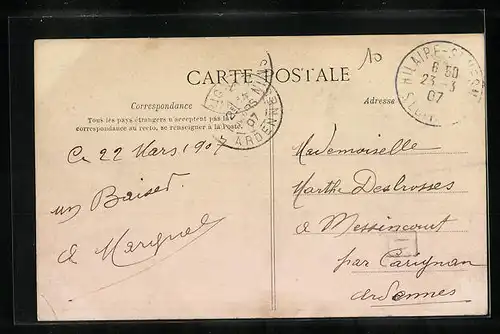 10
CARTE POSTALE
Correspondance
Adresse
Tous les pays étrangers n'acceptent pas la
correspondance au recto, se renseigner à la Poste.
ARDENNES
07
HILAIRE-ST
8 50
23 -3
07
Ce 22 Mars 1907
un Baiser.
de
Mademoiselle
Marthe Desbrosses
à Messincourt
par Carignan
Ardennes